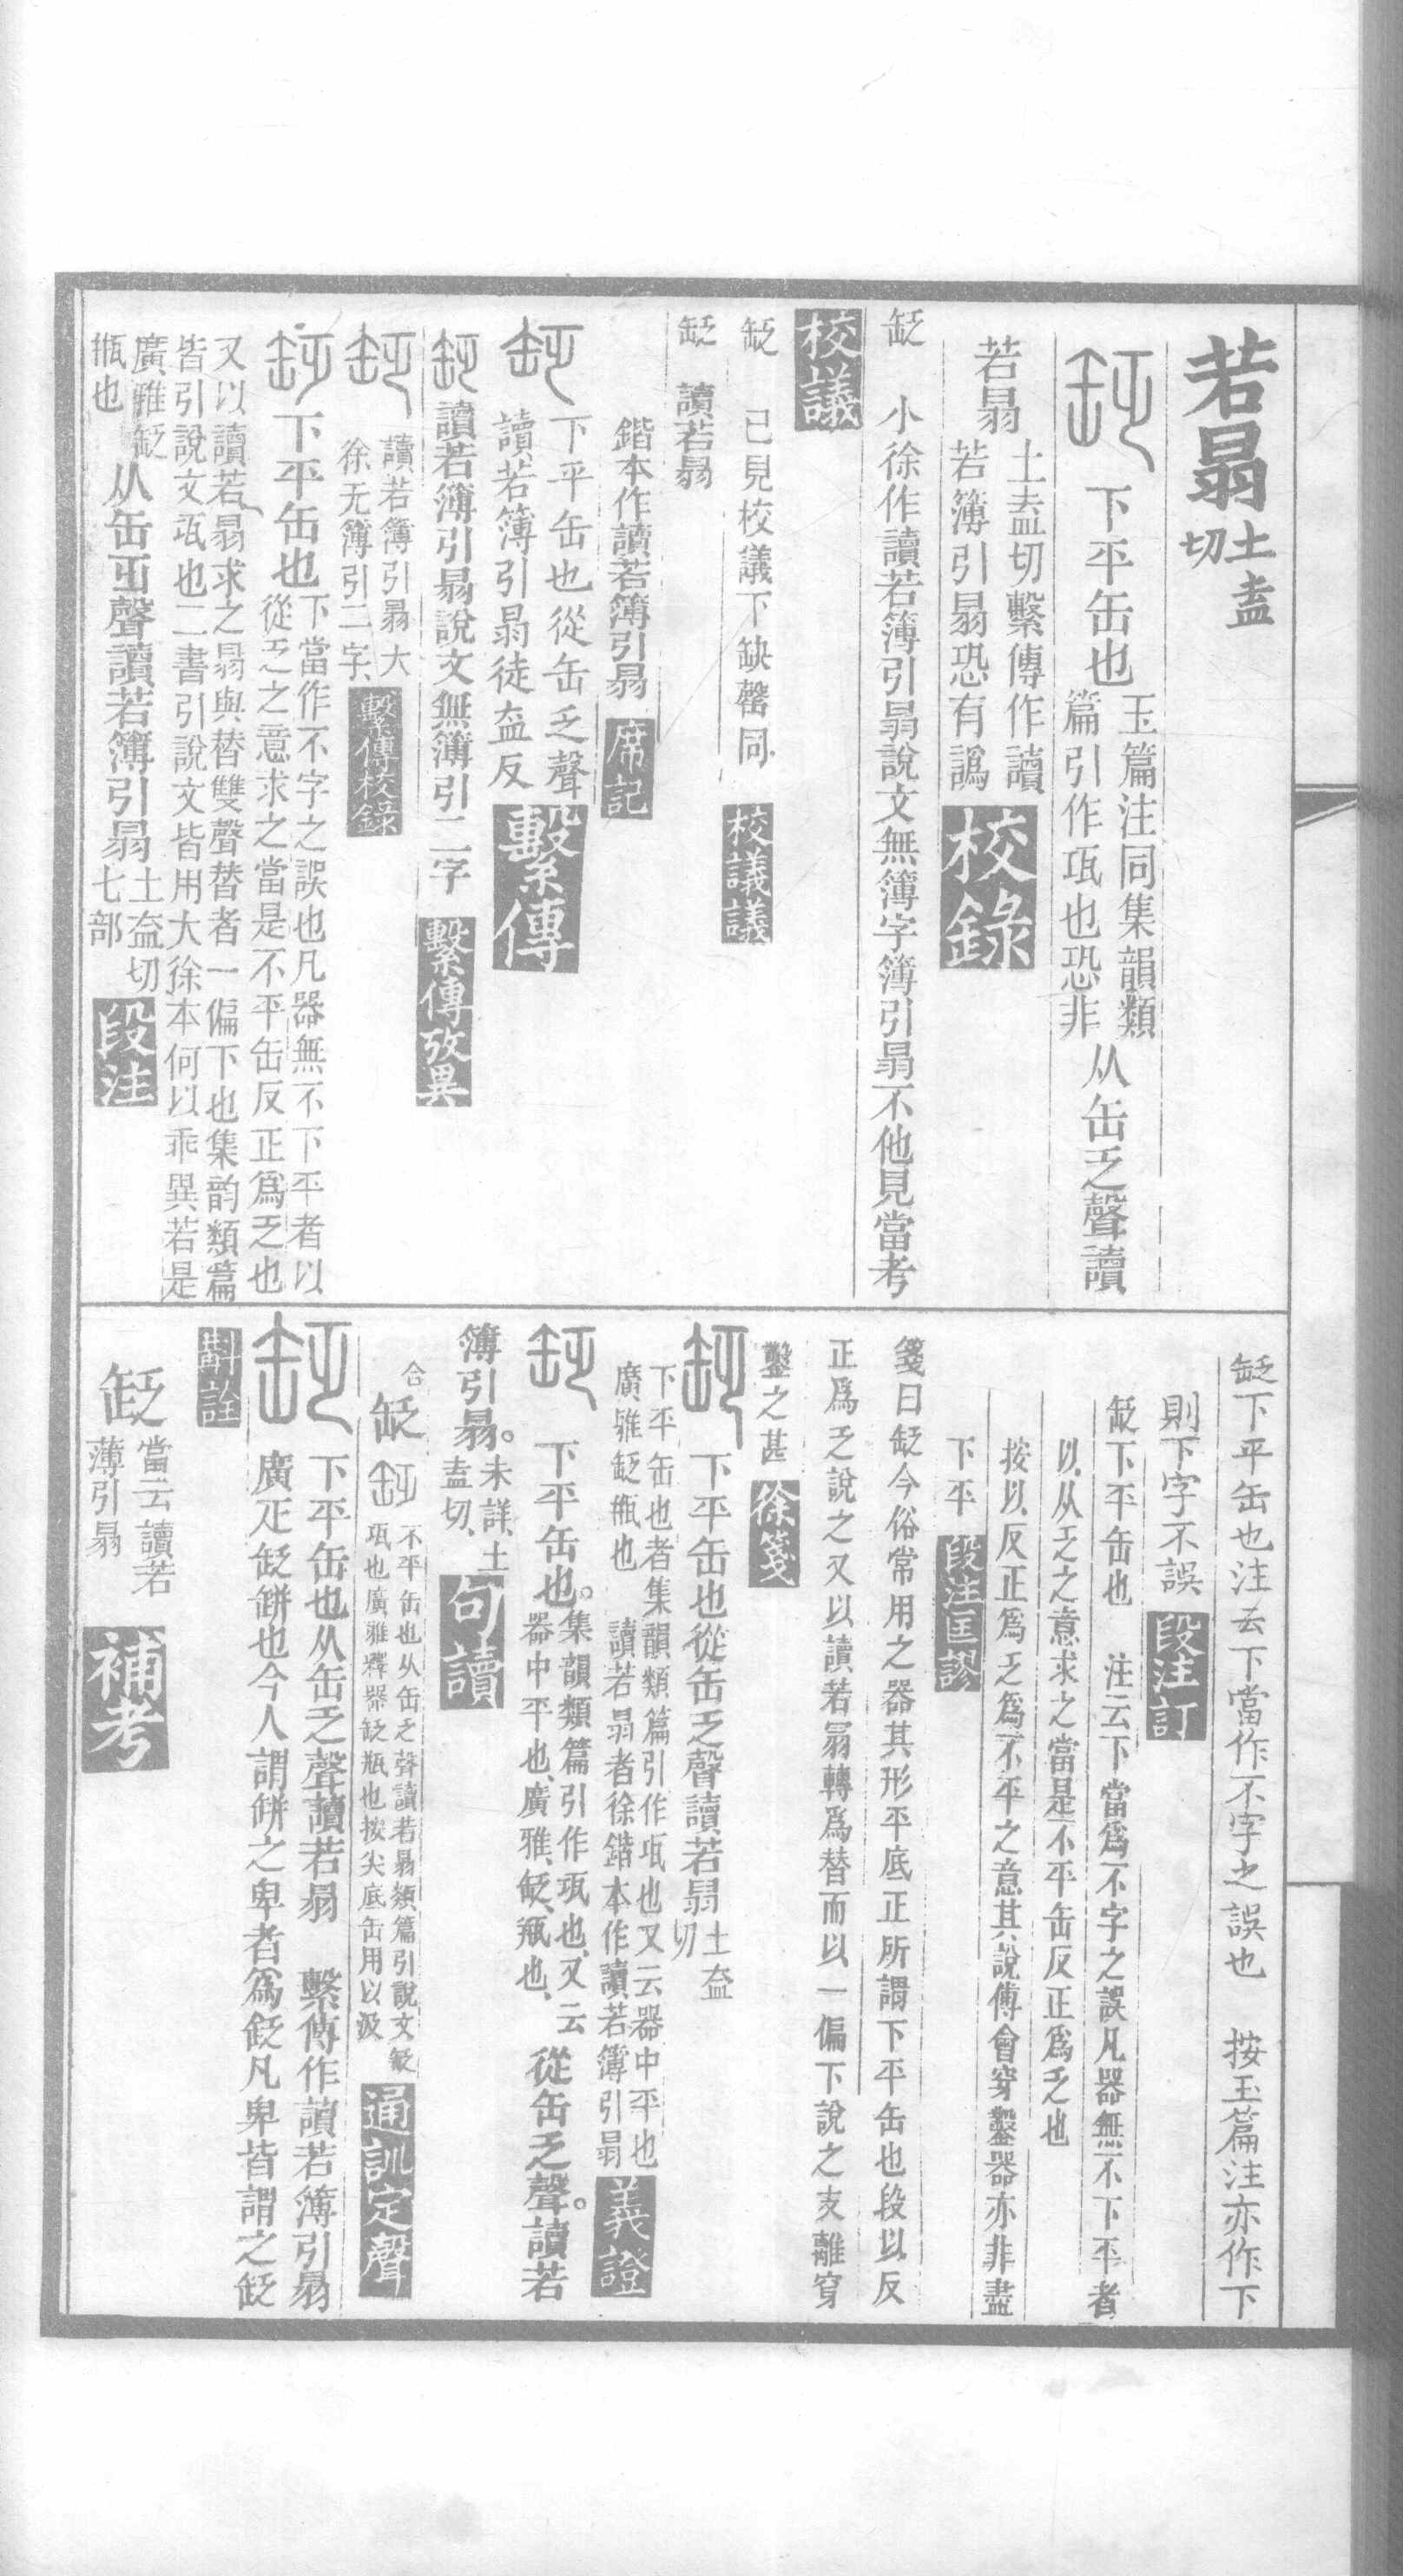 若㬱土盍切
下平缶也玉篇注同集韻類篇引作瓨也恐非从缶乏聲讀
若㬱土盍切繫傳作讀若簿引㬱恐有譌 校錄
䍇 小徐作讀若簿引㬱說文無簿字簿引㬱不他見當考
校議
䍇 已見校議下缺罄同 校議議
䍇 讀若㬱
鍇本作讀若簿引㬱 席記
下平缶也從缶乏聲
讀若簿引㬱徒盍反 繫傳
讀若簿引㬱說文無簿引二字 繫傳攷異
讀若簿引㬱大徐无簿引二字 繫傳校錄
下平缶也下當作不字之誤也凡器無不下平者以從乏之意求之當是不平缶反正爲乏也
又以讀若㬱求之㬱與替雙聲替者一偏下也集韵類篇皆引說文瓨也二書引說文皆用大徐本何以乖異若是
廣雅䍇瓶也从缶乏聲讀若簿引㬱土盍切七部 段注
䍇下平缶也注云下當作不字之誤也 按玉篇注亦作下
則下字不誤 段注訂
䍇下平缶也 注云下當爲不字之誤凡器無不下平者
以从乏之意求之當是不平缶反正爲乏也
按以反正爲乏爲不平之意其說傅會穿鑿器亦非盡
下平 段注匡謬
箋曰䍇今俗常用之器其形平底正所謂下平缶也段以反
正爲乏說之又以讀若㬱轉爲替而以一偏下說之支離穿
鑿之甚 徐箋
下平缶也從缶乏聲讀若㬱土盍切
下平缶也者集韻類篇引作瓨也又云器中平也
廣雅䍇瓶也 讀若㬱者徐鍇本作讀若簿引㬱 義證
下平缶也。集韻類篇引作瓨也、又云器中平也、廣雅、䍇、瓶也、從缶乏聲。讀若
簿引㬱。未詳、土盍切、 句讀
合䍇 不平缶也从缶乏聲讀若㬱類篇引說文䍇瓨也廣雅釋器䍇瓶也按尖底缶用以汲 通訓定聲
下平缶也从缶乏聲讀若㬱 繫傳作讀若簿引㬱
廣疋䍇缾也今人謂缾之卑者爲䍇凡卑皆謂之䍇
斠詮
䍇當云讀若薄引㬱 補考